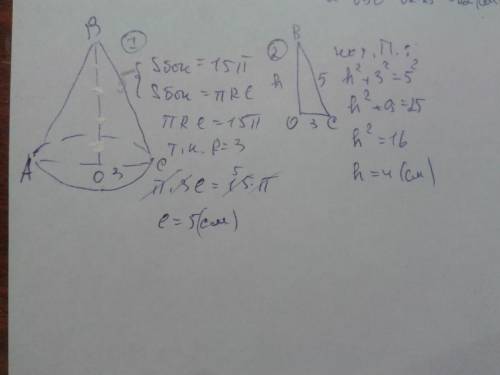 ①
B
A
O 3
C
Sбок = 15π
Sбок = πRl
πRl = 15π
т.к. R = 3
π·3l = 15·π
5
l = 5(см)
②
B
h
5
O 3 C
по т. П.:
h² + 3² = 5²
h² + 9 = 25
h² = 16
h = 4 (см)